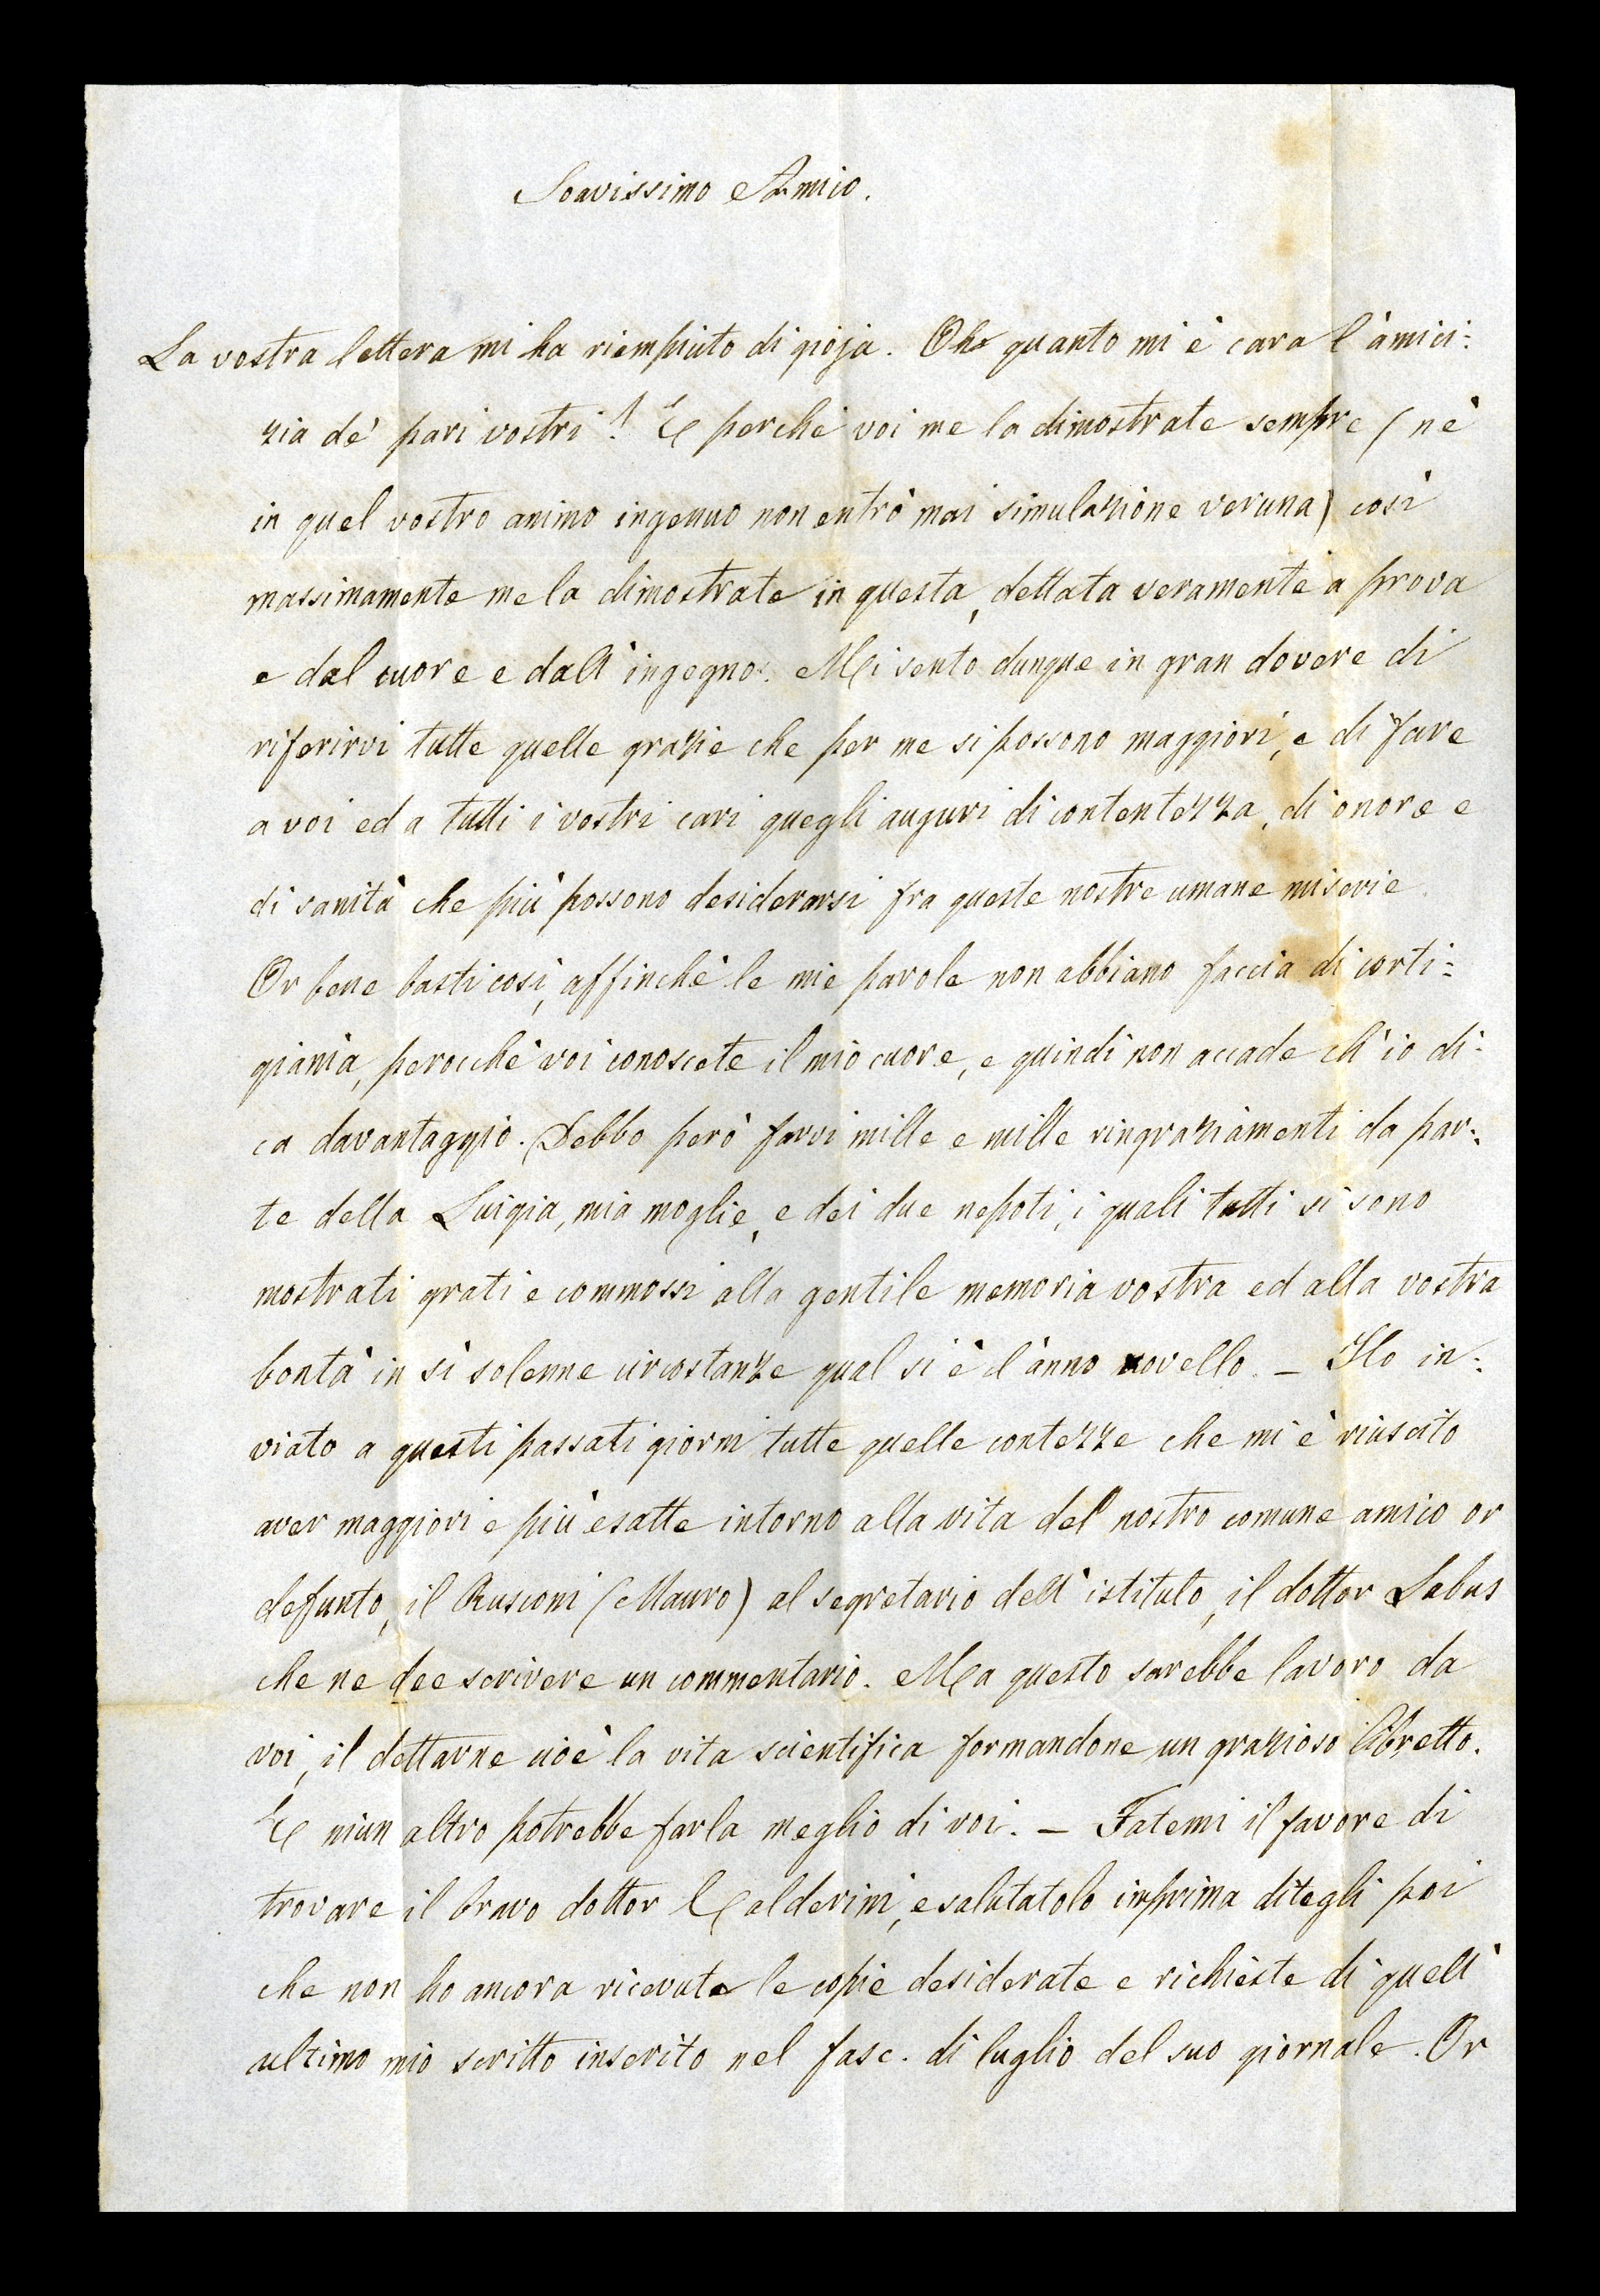 Soavissimo Amico.
La vostra lettera mi ha riempiuto di gioja. Oh quanto mi è cara l'amici:
zia de' pari vostri! E perchè voi me la dimostrate sempre (nè
in quel vostro animo ingenuo non entrò mai simulazione veruna) così
massimamente me la dimostrate in questa, dettata veramente a prova
e dal cuore e dall'ingegno. Mi sento dunque in gran dovere di
riferirvi tutte quelle grazie che per me si possono maggiori, e di fare
a voi ed a tutti i vostri cari quegli auguri di contentezza, di onore e
di sanità che più possono desiderarsi fra queste nostre umane miserie.
Or bene basti così, affinchè le mie parole non abbiano faccia di corti:
giania, perocchè voi conoscete il mio cuore, e quindi non accade ch'io di:
ca davantaggio. Debbo però farvi mille e mille ringraziamenti da par:
te della Luigia, mia moglie, e dei due nepoti, i quali tutti si sono
mostrati grati e commossi alla gentile memoria vostra ed alla vostra
bontà in sì solenne circostanze qual si è l'anno novello. – Ho in:
viato a questi passati giorni tutte quelle contezze che mi è riuscito
aver maggiori e più esatte intorno alla vita del nostro comune amico or
defunto, il Rusconi (Mauro) al segretario dell'istituto, il dottor Labus
che ne dee scrivere un commentario. Ma questo sarebbe lavoro da
voi, il dettarne cioè la vita scientifica formandone un grazioso libretto.
E niun altro potrebbe farla meglio di voi. – Fatemi il favore di
trovare il bravo dottor Calderini, e salutatolo imprima ditegli poi
che non ho ancora ricevute le copie desiderate e richieste di quell'
ultimo mio scritto inserito nel fasc. di luglio del suo giornale. Or